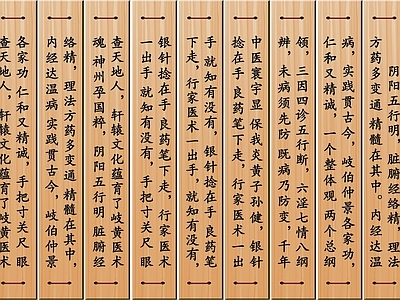 阴阳五行明，脏腑经络精，理法
方药多变通 精髓在其中。内经达温
病，实践贯古今，岐伯仲景各家功，
仁和又精诚，一个整体观 两个总纲
领，三因四诊五行断，六淫七情八纲
辨，未病须先防 既病乃防变，千年
中医寰宇显 保我炎黄子孙健，银针
捻在手 良药笔下走，行家医术一出
手 就知有没有，银针捻在手 良药笔
下走，行家医术一出手 就知有没有，
银针捻在手 良药笔下走，行家医术
一出手 就知有没有，手把寸关尺 眼
查天地人，轩辕文化蕴育了岐黄医术
魂 神州孕国粹，阴阳五行明，脏腑经
络精，理法方药多变通 精髓在其中，
内经达温病 实践贯古今，岐伯仲景
各家功 仁和又精诚，手把寸关尺 眼
查天地人，轩辕文化蕴育了岐黄医术